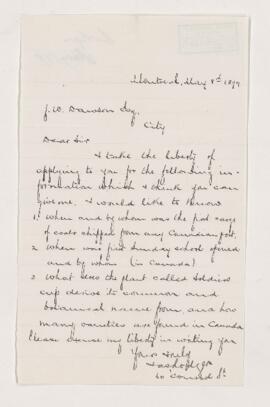 Montreal, May 8th 1897
J. W. Dawson Esq.
City
Dear Sir
I take the liberty of
applying to you for the following in-
formation which I think you can
give me. I would like to know
1. When and by whom was the first cargo
of coals shipped from any Canadian port.
2 When was first Sunday school opened
and by whom (in Canada)
3 What does the plant called Soldiers
cup derive its common and
botanical name from, and how
many varieties are found in Canada
Please excuse my liberty in writing you
Yours truly
St.